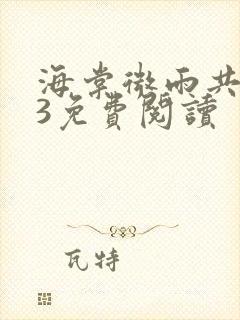 海棠微雨共
3免費閱讀
瓦特